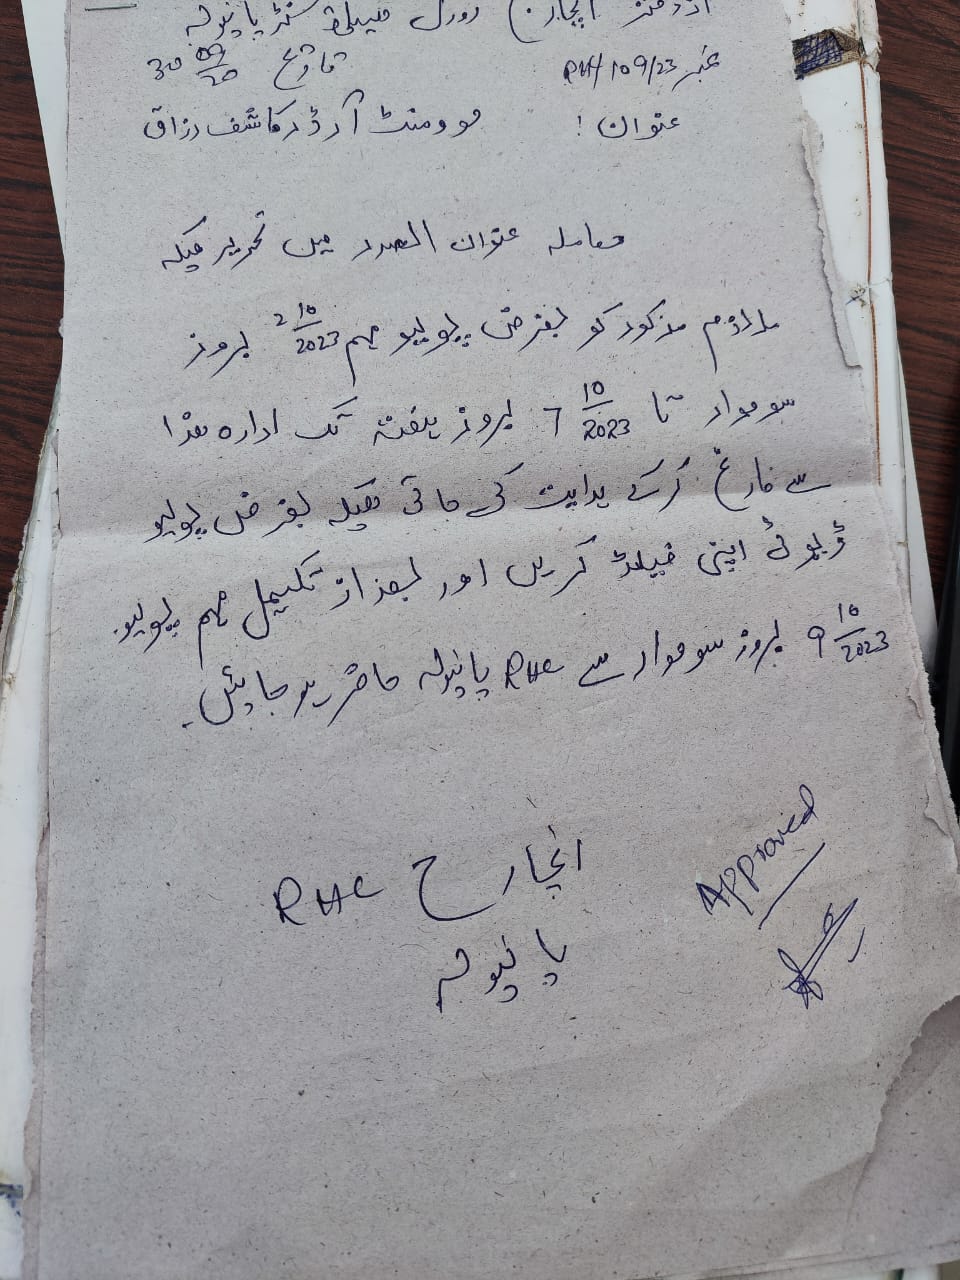 از دفتر انچارج رورل ہیلتھ سنٹر پانپولہ
نمبر RH/109/23 تاریخ 30 09/20
عنوان! موومنٹ آرڈر کاشف رزاق
معاملہ عنوان الصدر میں تحریر ہیکہ
ملازم مذکور کو بغرض پولیو مہم 2 10/2023 بروز
سوموار تا 7 10/2023 بروز ہفتہ تک ادارہ ھذا
سے فارغ کرکے ہدایت کی جاتی ھیکہ بغرض پولیو
ڈیوٹی اپنی فیلڈ کریں اور بعداز تکمیل مہم پولیو
9 10/2023 بروز سوموار سے RHC پانپولہ حاضر ہوجائیں۔
انچارج RHC
پانپولہ
Approved